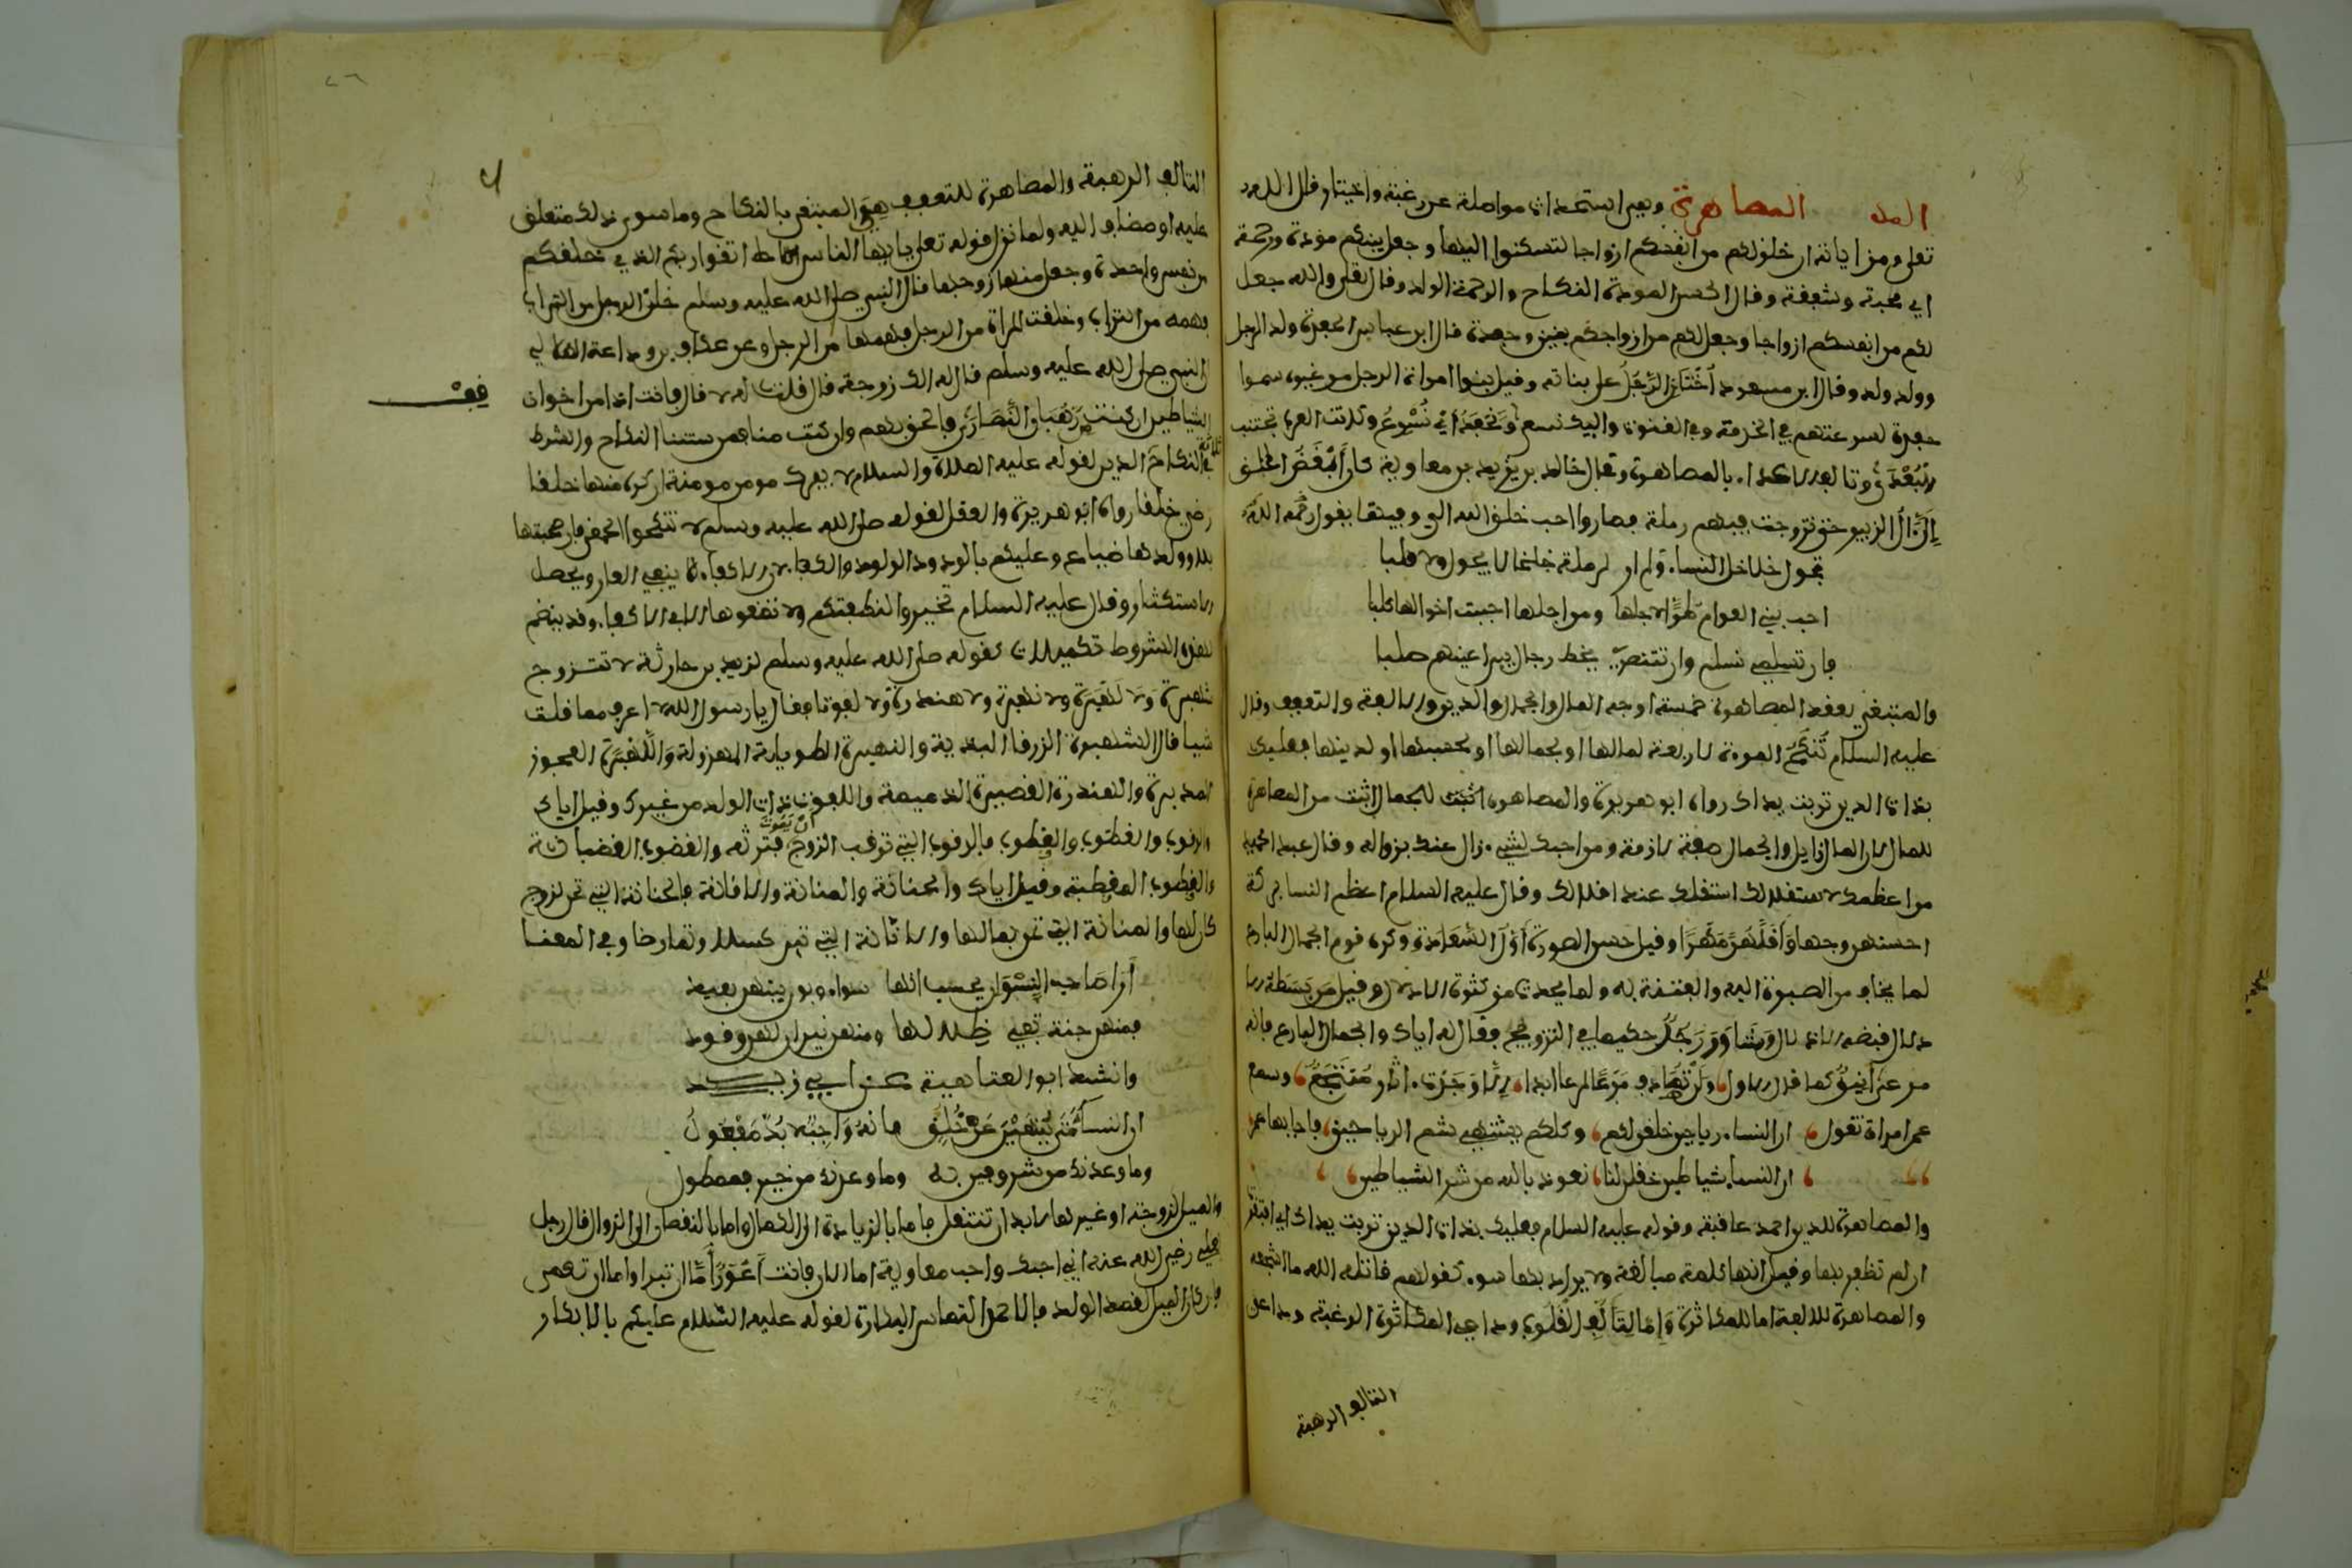 المصاهرة وهي استحداث مواصلة عن رغبة واختيار قال الله
تعلى ومن اياته ان خلق لكم من انفسكم ازواجا لتسكنوا اليها وجعل بينكم مودة ورحمة
اي محبة وشفقة وقال الحسن المودة النكاح والرحمة الولد وقال تعلى والله جعل
لكم من انفسكم ازواجا وجعل لكم من ازواجكم بنين وحفدة قال ابن عباس الحفدة ولد الرجل
وولد ولده وقال ابن مسعود أختان الرجل على بناته وقيل بنوا امراة الرجل من غيره سموا
حفدة لسرعتهم في الخدمة وفي القنوت واليك نسعى ونحفد أي نسرع وكانت العرب تجتنب
بالمصاهرة وقال خالد بن يزيد بن معاوية كان أبغض الخلق
إلي آل الزبير حتى تزوجت فيهم رملة فصاروا احب خلق الله الي وفيها يقول رحمه الله
تجول خلاخل النساء ولا ار لرملة خلخالا يجول ولا قلبا
احب بني العوام طرا لاجلها ومن اجلها احببت اخوالها كلبا
فان تسلمي نسلم وان تتنصري يخط رجال بين اعينهم صلبا
والمبتغى بعقد المصاهرة خمسة اوجه المال والجمال والدين والالفة والتعفف وقال
عليه السلام تنكح المرءة لاربعة لمالها او جمالها او لحسبها او لدينها فعليك
بذات الدين تربت يداك رواه ابو هريرة والمصاهرة للجمال اثبت من المصاهرة
للمال لان المال زايل والجمال صفة لازمة ومن احبك لشيء زال عند زواله وقال عبد الحميد
من اعظمك لاستقلالك استقلك عند اقلالك وقال عليه السلام اعظم النساء بركة
احسنهن وجها وأقلهن مهرا وقيل حسن الصورة أول السعادة وكره قوم الجمال البارع
لما يخاف من الصبوة اليه والفتنة به ولما يحدث من كثرة الادلال وقيل من بسطه
الادلال قبضه الاذلال وشاور رجل حكيما في التزويج فقال له اياك والجمال البارع فانه
مرعى أنيق كما قال الاول ولن تصادف مرعا ممرعا ابدا إلا وجدت به اثار منتجع وسمع
عمر امراة تقول ان النساء رياحين خلقن لكم وكلكم يشتهي شم الرياحين فاجابها عمر
ان النساء شياطين خلقن لنا نعوذ بالله من شر الشياطين
والمصاهرة للدين احمد عاقبة وقوله عليه السلام فعليك بذات الدين تربت يداك اي افتقرتا
ان لم تظفر بها وقيل انها كلمة مبالغة ولا يراد بها سوء كقولهم قاتله الله ما اشجعه
والمصاهرة للالفة اما للمكاثرة وإما لتألف القلوب وداعي المكاثرة الرغبة وداعي
التالف الرهبة
التالف الرهبة والمصاهرة للتعفف هي المبتغى بالنكاح وما سوى ذلك متعلق
عليه او مضاف اليه ولما نزل قوله تعلى يا ايها الناس اتقوا ربكم الذي خلقكم
من نفس واحدة وجعل منها زوجها قال النبي صلى الله عليه وسلم خلق الرجل من التراب
فهمه من التراب وخلقت المراة من الرجل فهمها من الرجل وعن عكاف بن وداعة الهلالي
ان النبي صلى الله عليه وسلم قال له الك زوجة قال قلت لا قال فانت اذا من اخوان
الشياطين ان كنت من رهبان النصارى فالحق بهم وان كنت منا فمن سنتنا النكاح والشرط
قف
في النكاح الدين لقوله عليه الصلاة والسلام لا يفرك مومن مومنة ان كره منها خلقا
رضي خلقا رواه ابو هريرة والعقل لقوله صلى الله عليه وسلم لا تنكحوا الحمقى فان صحبتها
بلاء وولدها ضياع وعليكم بالودود الولود
الاستكثار وقال عليه السلام تخيروا لنطفكم ولا تضعوها الا في الاكفاء وقد ينضم
لهذه الشروط تكميلات كقوله صلى الله عليه وسلم لزيد بن حارثة لا تتزوج
شهبرة ولا لهبرة ولا نهبرة ولا هندرة ولا لفوتا فقال يا رسول الله لا اعرف مما قلت
شيا قال الشهبرة الزرقا البذية والنهبرة الطويلة المهزولة واللهبرة العجوز
المدبرة والهندرة القصيرة الذميمة واللفوت ذات الولد من غيرك وقيل اياك
والرقوب والغضوب والقطوب فالرقوب التي ترقب الزوج أن يموت فترثه والغضوب الغضبانة
والقطوب المقطبة وقيل اياك والحنانة والمنانة والانانة فالحنانة التي تحن لزوج
كان لها والمنانة التي تمن بمالها والانانة التي تئن كسلا وتمارضا وفي المعنا
أرا صاحب النسوان يحسب انها سواء وبون بينهن بعيد
فمنهن جنة تفي ظلالها ومنهن نيران لهن وقود
وانشد ابو العتاهية عن ابي زيد
ان النساء متى ينهين عن خلق فانه واجب لا بد مفعول
وما وعدنك من شر وفين به وما وعدنك من خير فممطول
والميل لزوجة او غيرها لا بد ان تنتقل فاما بالزيادة الى الكمال واما بالنقصان الى الزوال قال رجل
لعلي رضي الله عنه اني احبك واحب معاوية اما الان فانت أعور إما ان تبرا واما ان تعمى
فان كان الميل لقصد الولد فالاحمد التماس البكارة لقوله عليه السلام عليكم بالابكار